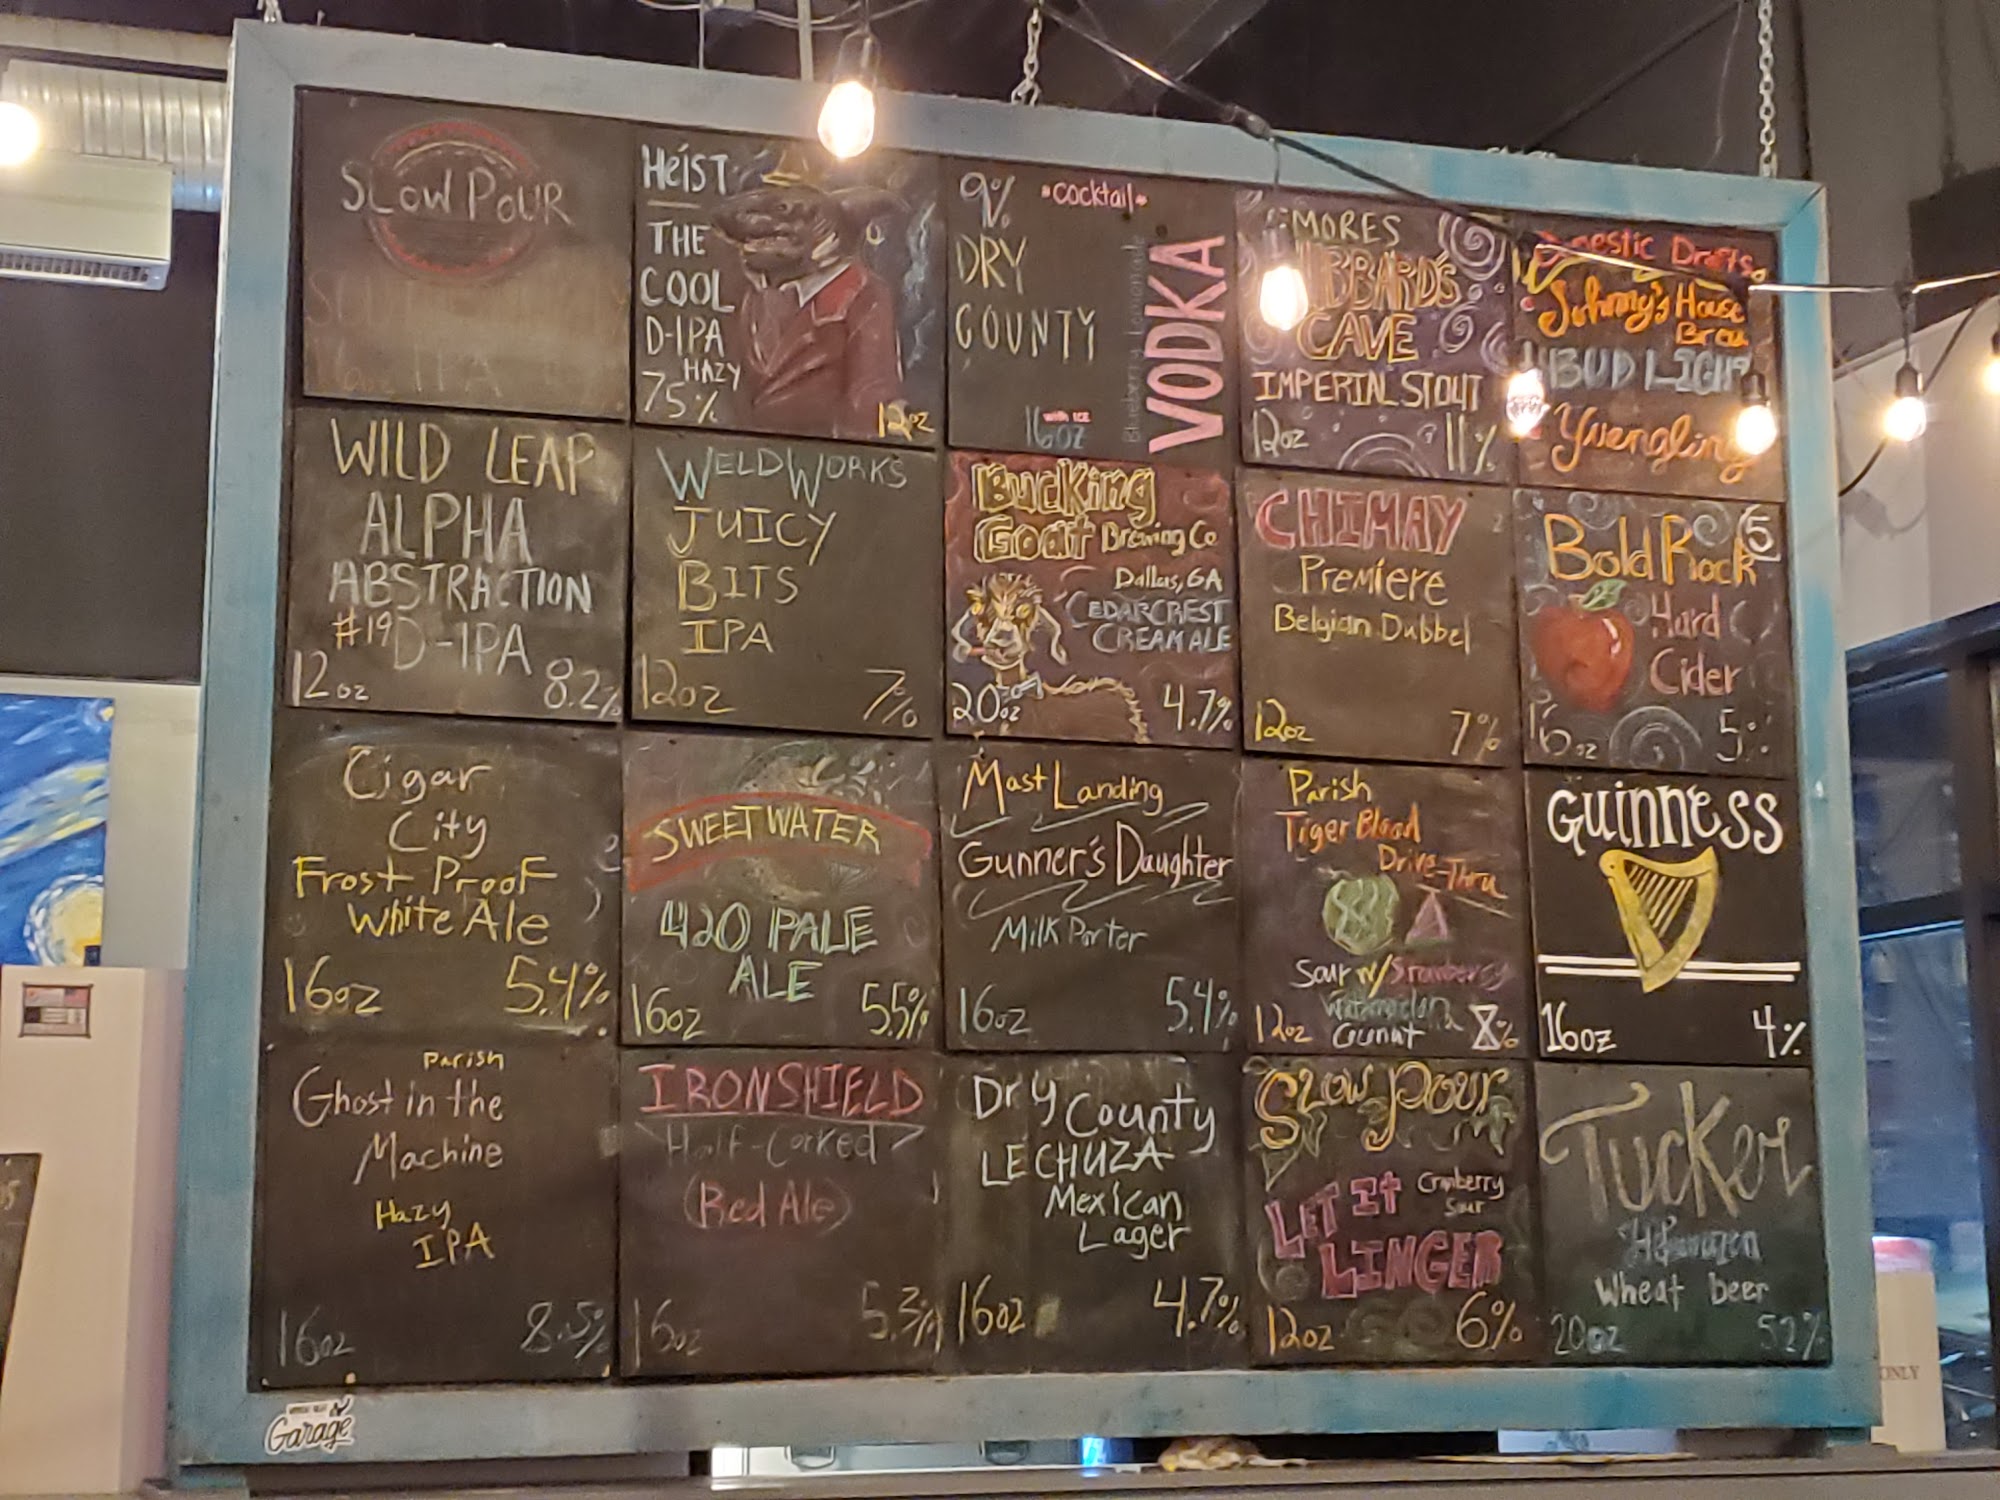 SLOW POUR
IPA
HEIST
THE
COOL
D-IPA
HAZY
75%
12oz
9%
*cocktail*
DRY
COUNTY
Blueberry Lemonade
VODKA
with ICE
16oz
MORES
CAVE
IMPERIAL STOUT
12oz
11%
Drafts
Johnny's House
Brew
BUD LIGHT
Yuengling
WILD LEAP
ALPHA
ABSTRACTION
#19 D-IPA
12oz
8.2%
WELDWORKS
JUICY
BITS
IPA
12oz
7%
Bucking
Goat Brewing Co
Dallas, GA
CEDARCREST
CREAM ALE
20oz
4.7%
CHIMAY
Premiere
Belgian Dubbel
12oz
7%
5
Bold Rock
Hard
Cider
16oz
5%
Cigar
City
Frost Proof
White Ale
16oz
5.4%
SWEETWATER
420 PALE
ALE
16oz
5.5%
Mast Landing
Gunner's Daughter
Milk Porter
16oz
5.4%
Parish
Tiger Blood
Drive-Thru
Sour w/ Strawberry
Watermelon
Counut
12oz
8%
GUINNESS
16oz
4%
Parish
Ghost in the
Machine
Hazy
IPA
16oz
8.5%
IRONSHIELD
Half-Corked
(Red Ale)
16oz
5.3%
Dry County
LECHUZA
Mexican
Lager
16oz
4.7%
Slow Pour
LET It
Cranberry
Sour
LINGER
12oz
6%
Tucker
Wheat beer
20oz
52%
Garage
ONLY